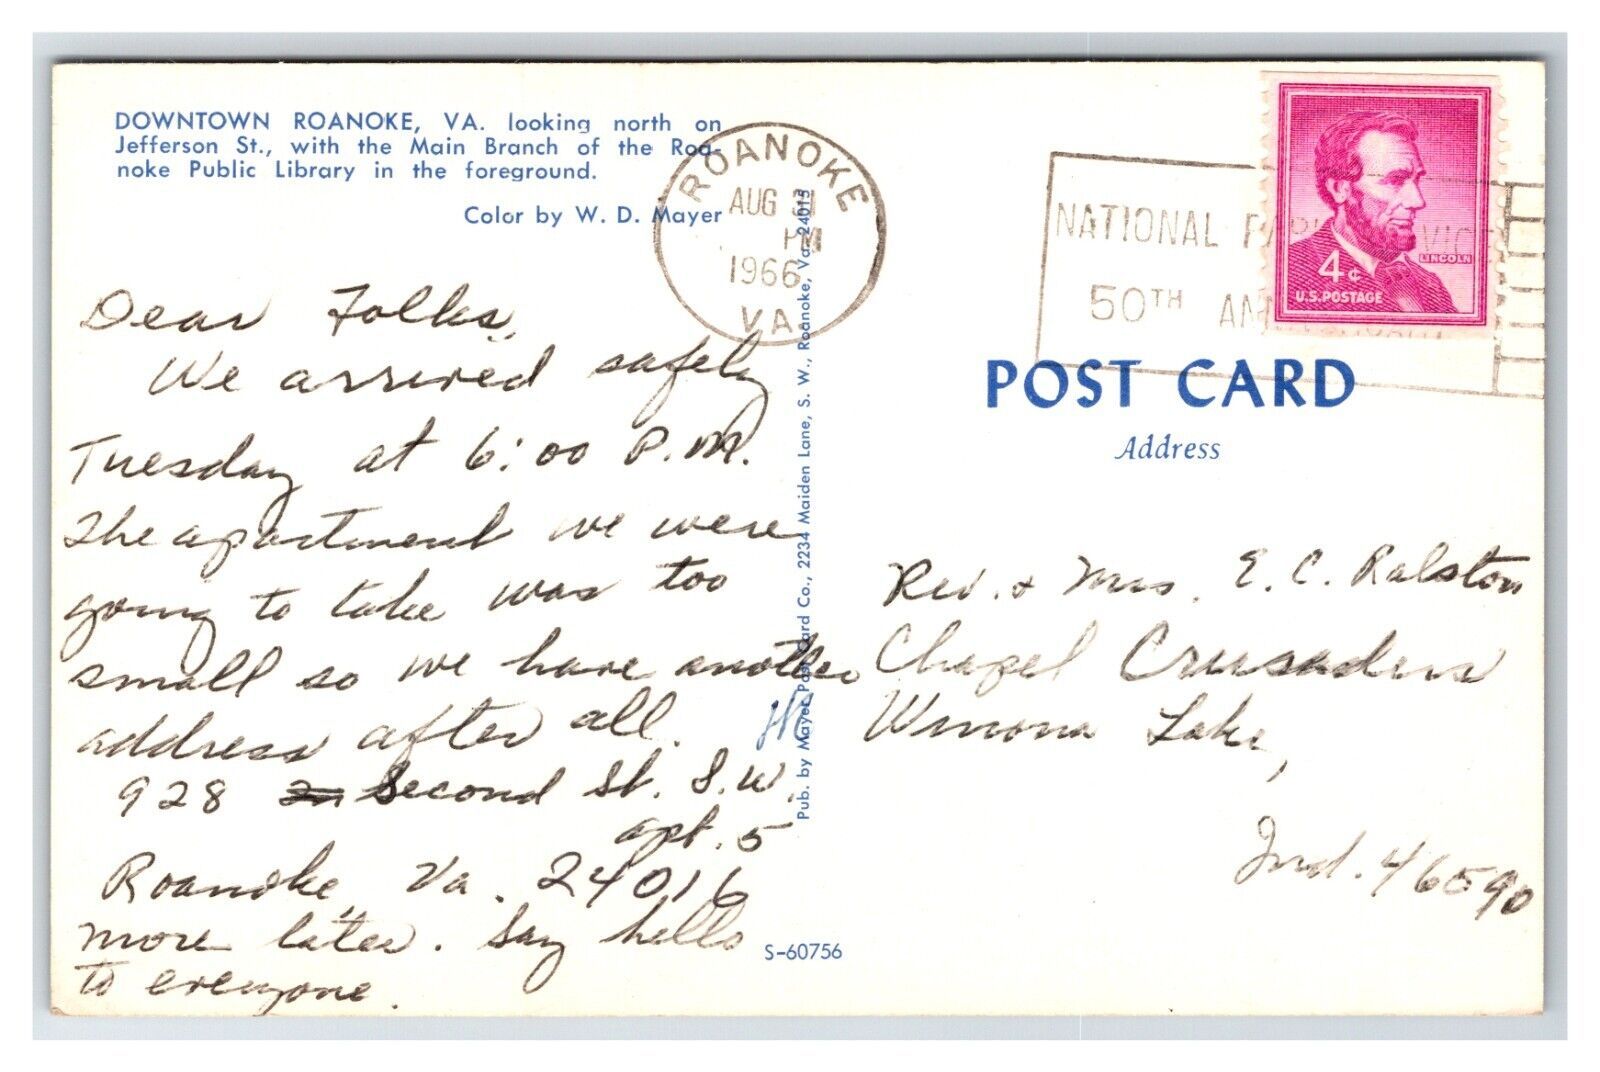 DOWNTOWN ROANOKE, VA. looking north on
Jefferson St., with the Main Branch of the Roa-
noke Public Library in the foreground.
Color by W. D. Mayer
Dear Folks,
We arrived safely
Tuesday at 6:00 P.M.
The apartment we were
going to take was too
small so we have another
address after all.
928 Second St. S.W.
apt. 5
Roanoke, Va. 24016
more later. Say hello
to everyone.
Pub. by Mayer Post Card Co., 2234 Maiden Lane, S. W., Roanoke, Va. 24015
S-60756
ROANOKE
AUG 31
PM
1966
VA.
NATIONAL PARK
50TH
4¢
LINCOLN
U.S. POSTAGE
POST CARD
Address
Rev. & Mrs. E. C. Ralston
Chapel Crusaders
Winona Lake,
Ind. 46590